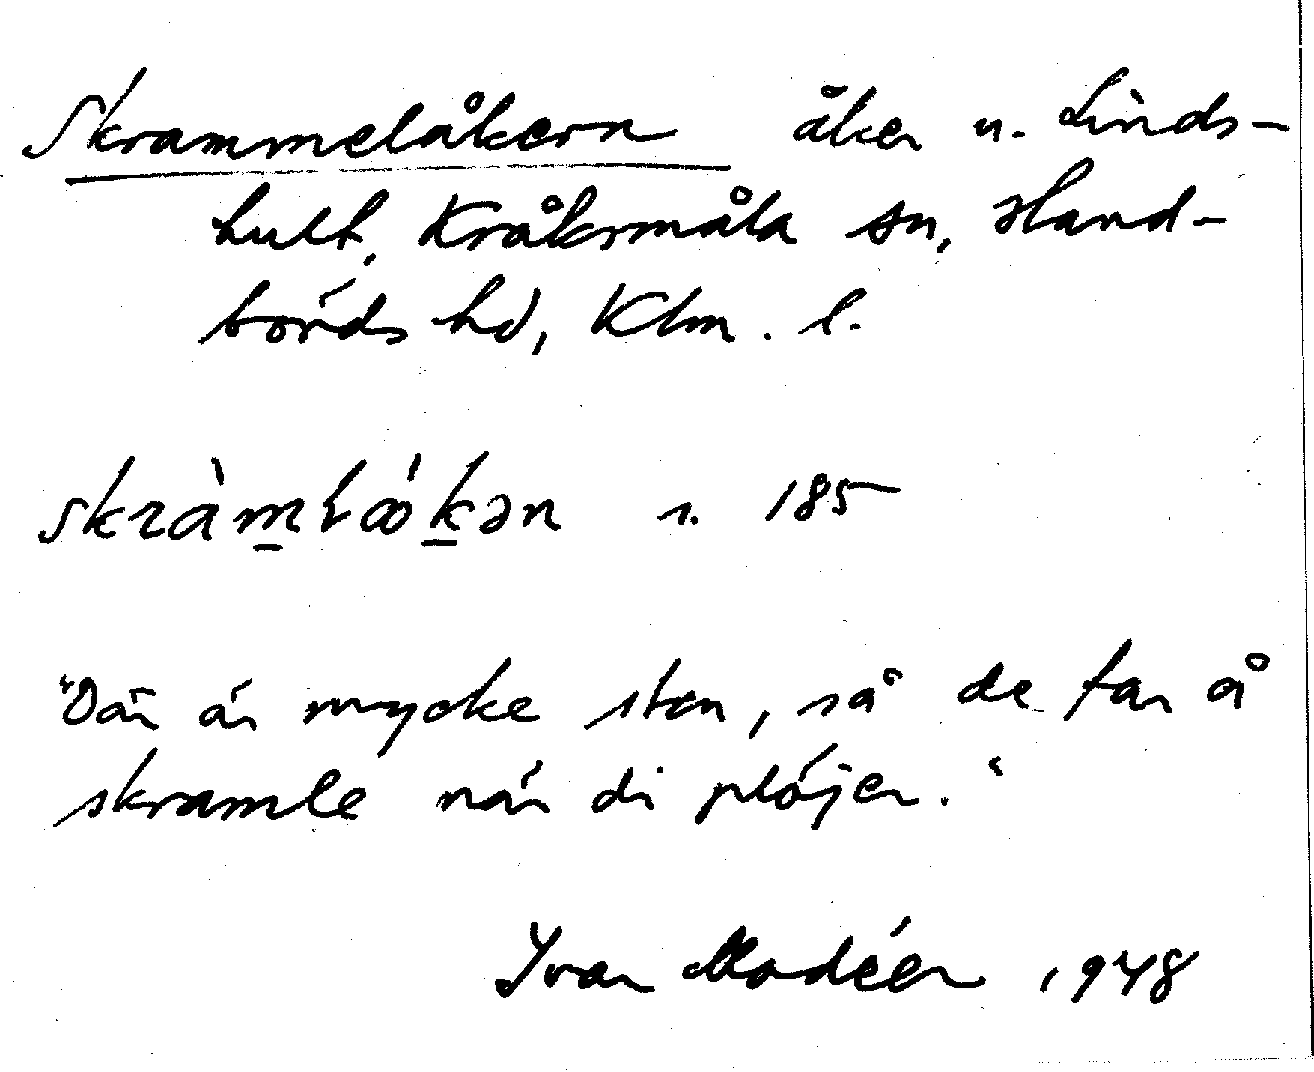 Skrammelåkern åker u. Linds-
hult, Kråksmåla sn, Hand-
börds hd, Klm. l.
skràm̠lǻk̠ən s. 185
"Där är mycke sten, så de tar å
skramle när di plöjer."
Ivar Modéer 1948